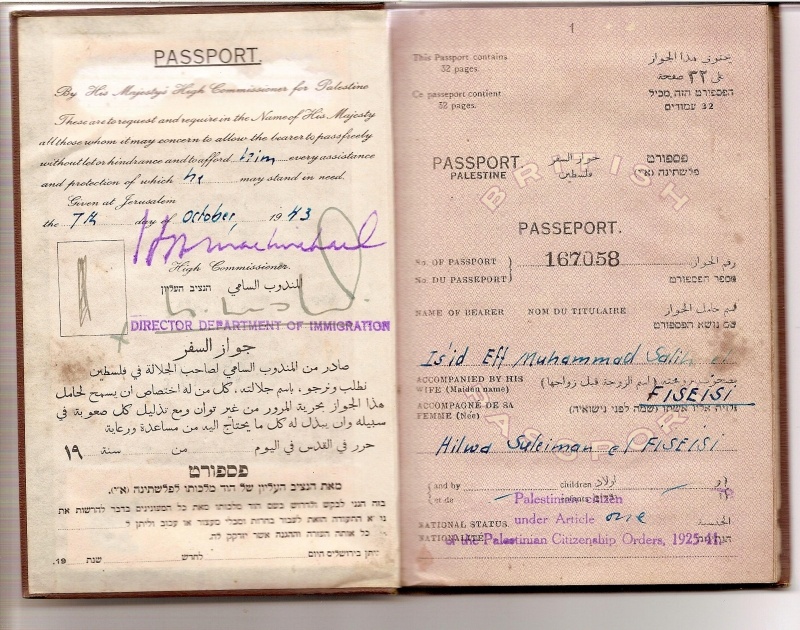 PASSPORT.
By His Majesty's High Commissioner for Palestine
These are to request and require in the Name of His Majesty
all those whom it may concern to allow the bearer to pass freely
without let or hindrance and to afford him every assistance
and protection of which he may stand in need.
Given at Jerusalem
the 7th day of October, 1943
High Commissioner.
המנדוب السامي הנציב העליון
DIRECTOR DEPARTMENT OF IMMIGRATION
جواز السفر
صادر من المندوب السامي لصاحب الجلالة في فلسطين
نطلب ونرجو، باسم جلالته، كل من له اختصاص ان يسمح لحامل
هذا الجواز بحرية المرور من غير توان ومع تذليل كل صعوبة في
سبيله وان يبذل له كل ما يحتاج اليه من مساعدة ورعاية
حرر في القدس في اليوم من سنة ١٩
פספורט
מאת הנציב העליון של הוד מלכותו לפלשתינה (א״י).
בזה הנני לבקש ולדרוש בשם הוד מלכותו מאת כל המעונינים בדבר להרשות את
נושא התעודה הזאת לעבור בחרות ומבלי מעצור או עכוב וליתן לו
כל אותה העזרה וההגנה אשר יזדקק לה.
ניתן בירושלים היום לחדש שנת 19.
1
This Passport contains
32 pages.
يحتوي هذا الجواز
على ٣٢ صفحة
Ce passeport contient
32 pages.
הפספורט הזה מכיל
32 עמודים
BRITISH
PASSPORT.
PALESTINE
جواز السفر
فلسطين
פספורט
פלשתינה (א״י)
PASSEPORT.
No. OF PASSPORT
No. DU PASSEPORT
167058
رقم الجواز
מספר הפספורט
NAME OF BEARER NOM DU TITULAIRE
اسم حامل الجواز
שם נושא הפספורט
Is'id Eff Muhammad Salih el
ACCOMPANIED BY HIS
WIFE (Maiden name)
(اسم الزوجة قبل زواجها)
FISEISI
ACCOMPAGNÉ DE SA
FEMME (Née)
נלוית אליו אשתו (שמה לפני נישואיה)
PASSPORT
Hilwa Suleiman el FISEISI
and by
et de
children
اولاد
Palestinian citizen
under Article one
of the Palestinian Citizenship Orders, 1925-41.
NATIONAL STATUS
NATIONALITÉ
الجنسية